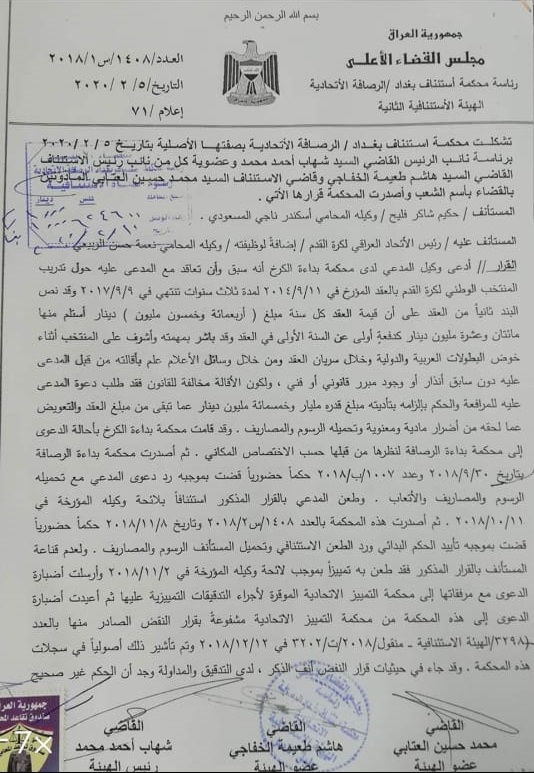 بسم الله الرحمن الرحيم
جمهورية العراق
مجلس القضاء الأعلى
رئاسة محكمة أستئناف بغداد / الرصافة الأتحادية
الهيئة الأستئنافية الثانية
العدد/١٤٠٨/س٢٠١٨/١
التاريخ/٥/ ٢ /٢٠٢٠
إعلام /٧١
تشكلت محكمة استئناف بغداد / الرصافة الأتحادية بصفتها الأصلية بتاريخ ٥ /٢ /٢٠٢٠
برئاسة نائب الرئيس القاضي السيد شهاب أحمد محمد وعضوية كل من نائب رئيس الاستئناف
القاضي السيد هاشم طعيمة الخفاجي وقاضي الاستئناف السيد محمد حسين العتابي المأذونين
بالقضاء بأسم الشعب وأصدرت المحكمة قرارها الأتي .
المستأنف / حكيم شاكر فليح / وكيله المحامي أسكندر ناجي المسعودي .
المستأنف عليه / رئيس الأتحاد العراقي لكرة القدم / إضافة لوظيفته / وكيله المحامي نعمة حسن الربيعي
القرار // أدعى وكيل المدعي لدى محكمة بداءة الكرخ أنه سبق وأن تعاقد مع المدعى عليه حول تدريب
المنتخب الوطني لكرة القدم بالعقد المؤرخ في ٢٠١٤/٩/١١ لمدة ثلاث سنوات تنتهي في ٢٠١٧/٩/٩ وقد نص
البند ثانياً من العقد على أن قيمة العقد كل سنة مبلغ ( أربعمائة وخمسون مليون ) دينار أستلم منها
مائتان وعشرة مليون دينار كدفعة أولى عن السنة الأولى في العقد وقد باشر بمهمته وأشوف على المنتخب أثناء
خوض البطولات العربية والدولية وخلال سريان العقد ومن خلال وسائل الأعلام علم بأقالته من قبل المدعى
عليه دون سابق أنذار أو وجود مبرر قانوني أو فني ، ولكون الأقالة مخالفة للقانون فقد طلب دعوة المدعى
عليه للمرافعة والحكم بإلزامه بتأديته مبلغ قدره مليار وخمسمائة مليون دينار عما تبقى من مبلغ العقد والتعويض
عما لحقه من أضرار مادية ومعنوية وتحميله الرسوم والمصاريف . وقد قامت محكمة بداءة الكرخ بأحالة الدعوى
إلى محكمة بداءة الرصافة لنظرها من قبلها حسب الاختصاص المكاني . ثم أصدرت محكمة بداءة الرصافة
بتاريخ ٢٠١٨/٩/٣٠ وعدد ١٠٠٧/ب/٢٠١٨ حكماً حضورياً قضت بموجبه رد دعوى المدعي مع تحميله
الرسوم والمصاريف والأتعاب . وطعن المدعي بالقرار المذكور استئنافاً بلائحة وكيله المؤرخة في
٢٠١٨/١٠/١١ . ثم أصدرت هذه المحكمة بالعدد ١٤٠٨/س٢٠١٨/٢ وتاريخ ٢٠١٨/١١/٨ حكماً حضورياً
قضت بموجبه تأييد الحكم البدائي ورد الطعن الاستئنافي وتحميل المستأنف الرسوم والمصاريف . ولعدم قناعة
المستأنف بالقرار المذكور فقد طعن به تمييزاً بموجب لائحة وكيله المؤرخة في ٢٠١٨/١١/٢ وأرسلت أضبارة
الدعوى مع مرفقاتها إلى محكمة التمييز الاتحادية الموقرة لأجراء التدقيقات التمييزية عليها ثم أعيدت أضبارة
الدعوى إلى هذه المحكمة من محكمة التمييز الاتحادية مشفوعة بقرار النقض الصادر منها بالعدد
(٣٢٩٨/الهيئة الاستئنافية - منقول/٢٠١٨/ت/٣٢٠٢ في ٢٠١٨/١٢/١٢ وتم تأشير ذلك أصولياً في سجلات
هذه المحكمة . وقد جاء في حيثيات قرار النقض أنف الذكر ، لدى التدقيق والمداولة وجد أن الحكم غير صحيح
القاضي
شهاب أحمد محمد
رئيس الهيئة
القاضي
هاشم طعيمة الخفاجي
عضو الهيئة
القاضي
محمد حسين العتابي
عضو الهيئة
جمهورية العراق